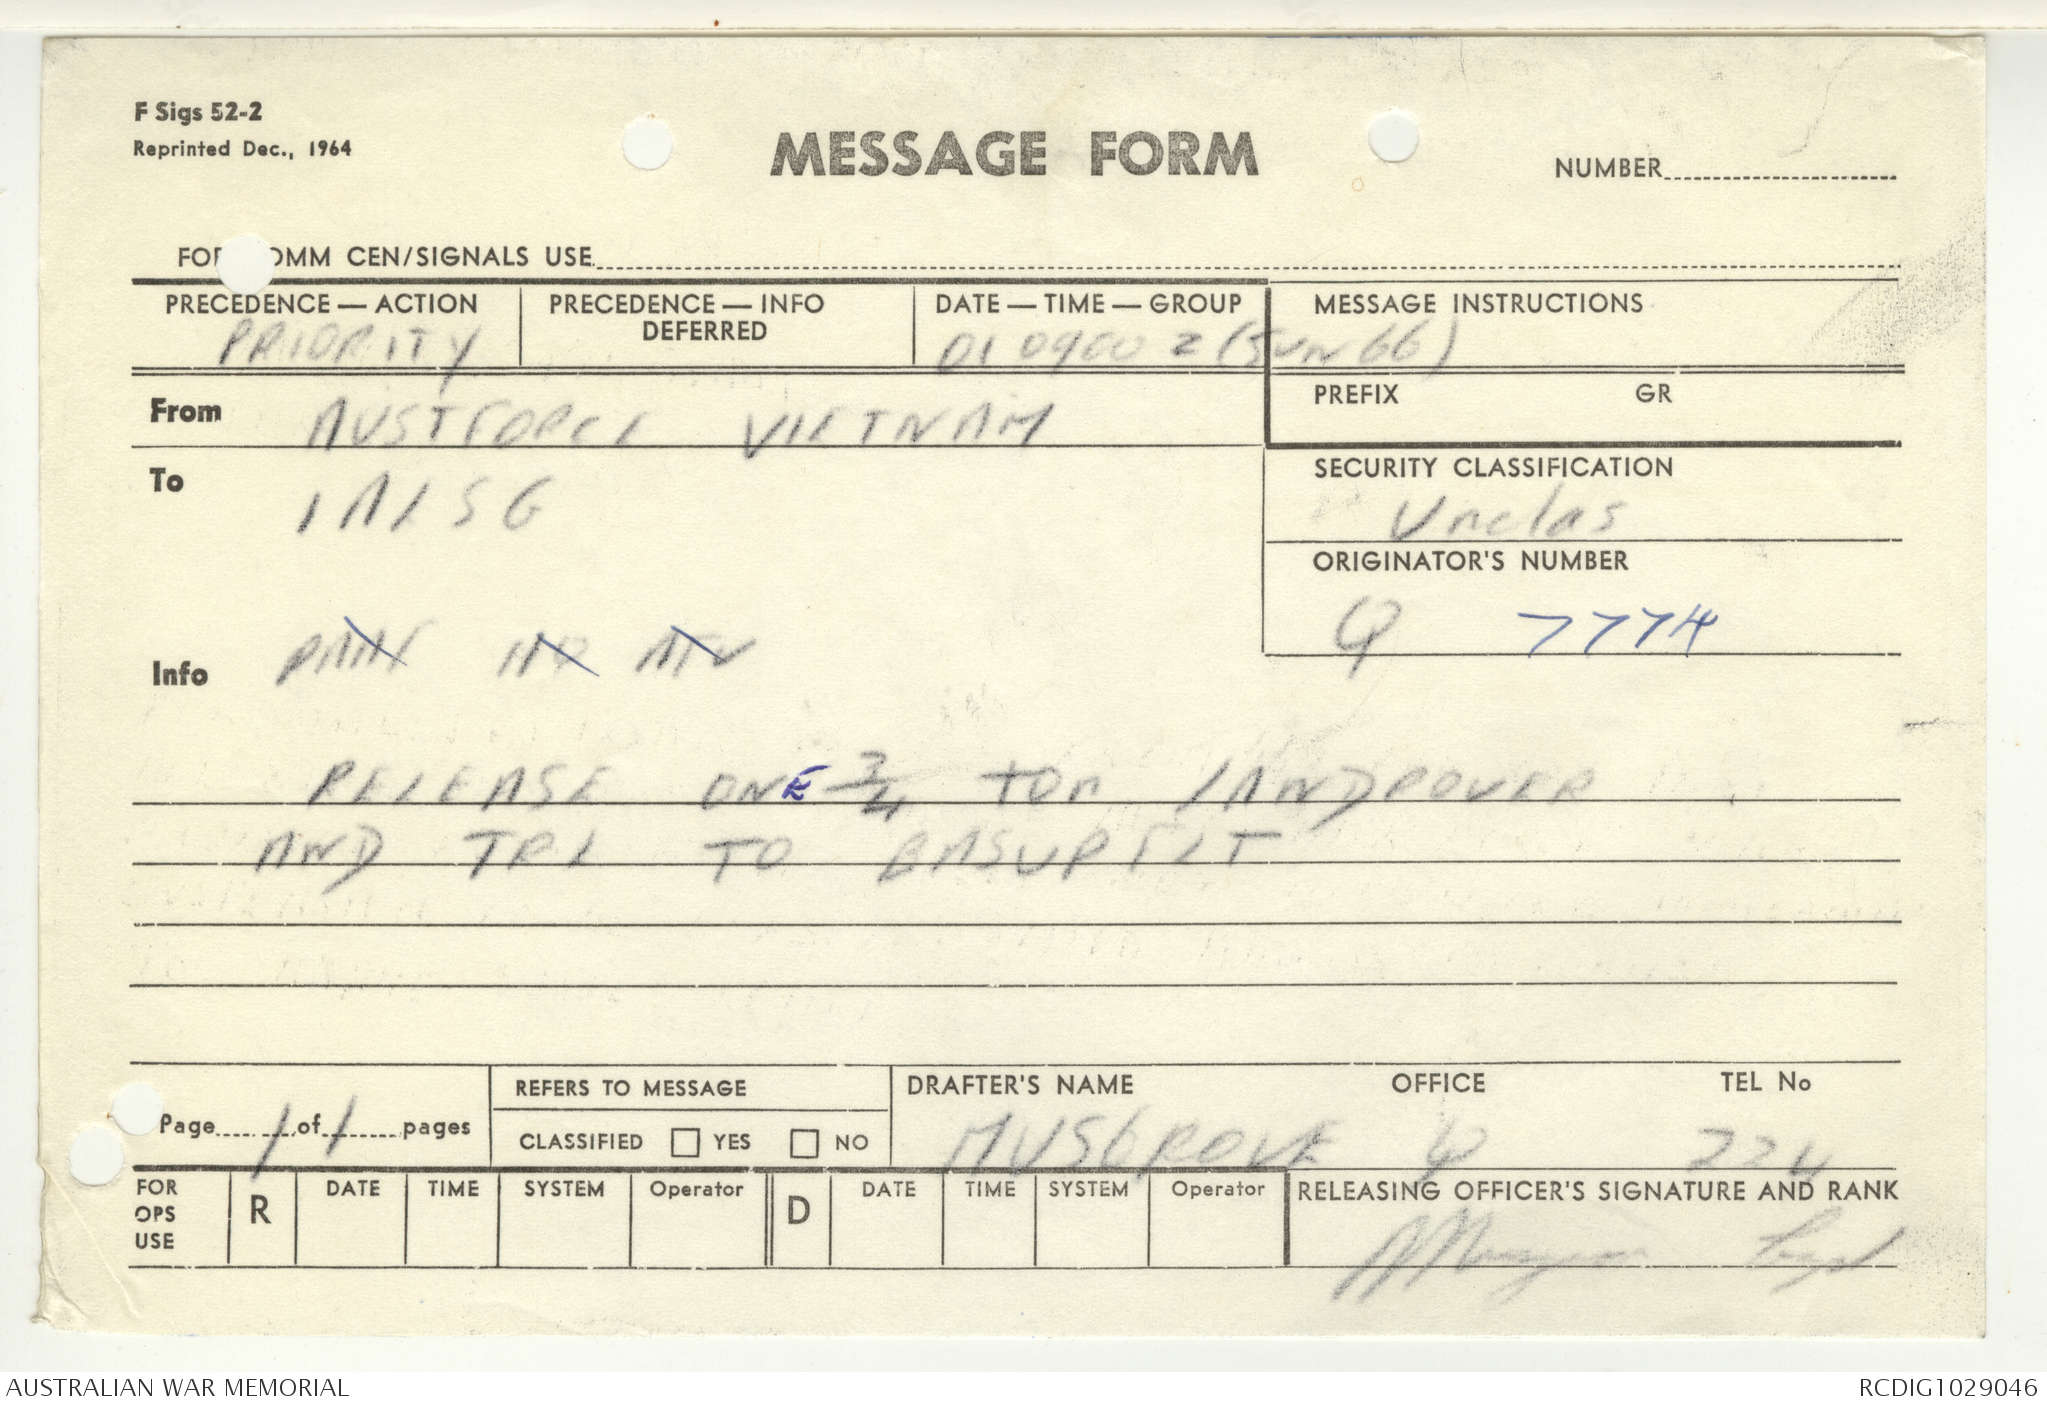 F Sigs 52-2
Reprinted Dec., 1964
MESSAGE FORM
NUMBER
FOR COMM CEN/SIGNALS USE
PRECEDENCE — ACTION
PRIORITY
PRECEDENCE — INFO
DEFERRED
DATE — TIME — GROUP
010900 Z (JUN 66)
MESSAGE INSTRUCTIONS
PREFIX GR
From AUSTFORCE VIETNAM
To 1 ALSG
SECURITY CLASSIFICATION
Unclas
ORIGINATOR'S NUMBER
Q 7774
Info
RELEASE ONE 3/4 TON LANDROVER
AND TRL TO BASUPFLT
Page 1 of 1 pages
REFERS TO MESSAGE
CLASSIFIED YES NO
DRAFTER'S NAME OFFICE TEL No
MUSGROVE Q 224
FOR OPS USE
R DATE TIME SYSTEM Operator
D DATE TIME SYSTEM Operator
RELEASING OFFICER'S SIGNATURE AND RANK
AUSTRALIAN WAR MEMORIAL
RCDIG1029046